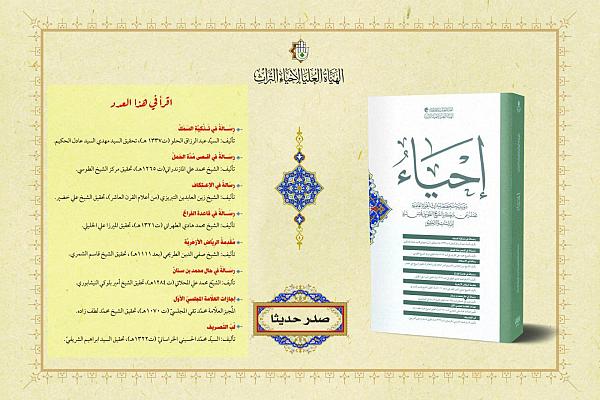 الهيأة العليا لإحياء التراث
اقرأ في هذا العدد
رسالة في تذكية السمك
تأليف: السيد عبد الرزاق الحلو (ت ١٣٣٧ هـ)، تحقيق السيد مهدي السيد عادل الحكيم.
رسالة في أقصى مدة الحمل
تأليف: الشيخ محمد علي المازندراني (ت ١٢٦٥هـ)، تحقيق مركز الشيخ الطوسي.
رسالة في الاعتكاف
تأليف: الشيخ زين العابدين التبريزي (من أعلام القرن العاشر)، تحقيق الشيخ علي خضير.
رسالة في قاعدة الفراغ
تأليف: الشيخ محمد هادي الطهراني (ت ١٣٢١هـ)، تحقيق الميرزا علي الجليلي.
مقدمة الرياض الأزهرية
تأليف: الشيخ صفي الدين الطريحي (بعد ١١١١هـ)، تحقيق الشيخ قاسم الشمري.
رسالة في حال محمد بن سنان
تأليف: الشيخ محمد علي المحلاتي (ت ١٢٨٤هـ)، تحقيق الشيخ أمير بلوكي النيشابوري.
إجازات العلامة المجلسي الأول
المجيز العلامة محمد تقي المجلسي (ت ١٠٧٠هـ)، تحقيق الشيخ محمد لطف زاده.
لب التصريف
تأليف: السيد محمد الحسيني الخراساني (ت ١٣٢٢هـ)، تحقيق السيد ابراهيم الشريفي.
صدر حديثا
إحياء